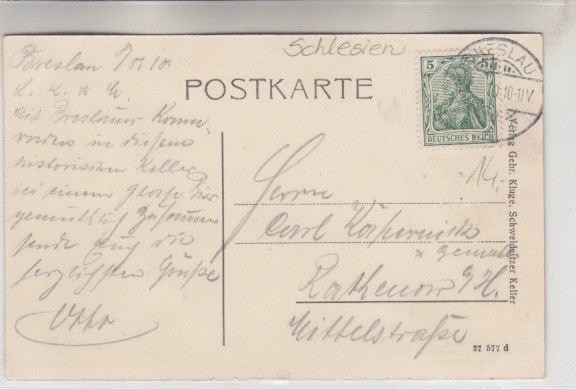 Schlesien
Breslau
POSTKARTE
BRESLAU
10-11V.
5 5
DEUTSCHES REICH
mit Breslauer
in diesem
historischen Keller
bei einem Glase Bier
gemütlich
sende euch die
herzlichsten Grüße
Otto
14.
Herrn
Carl
Rathenow a/H.
Mittelstraße
Verlag Gebr. Kluge, Schweidnitzer Keller
27 577 d